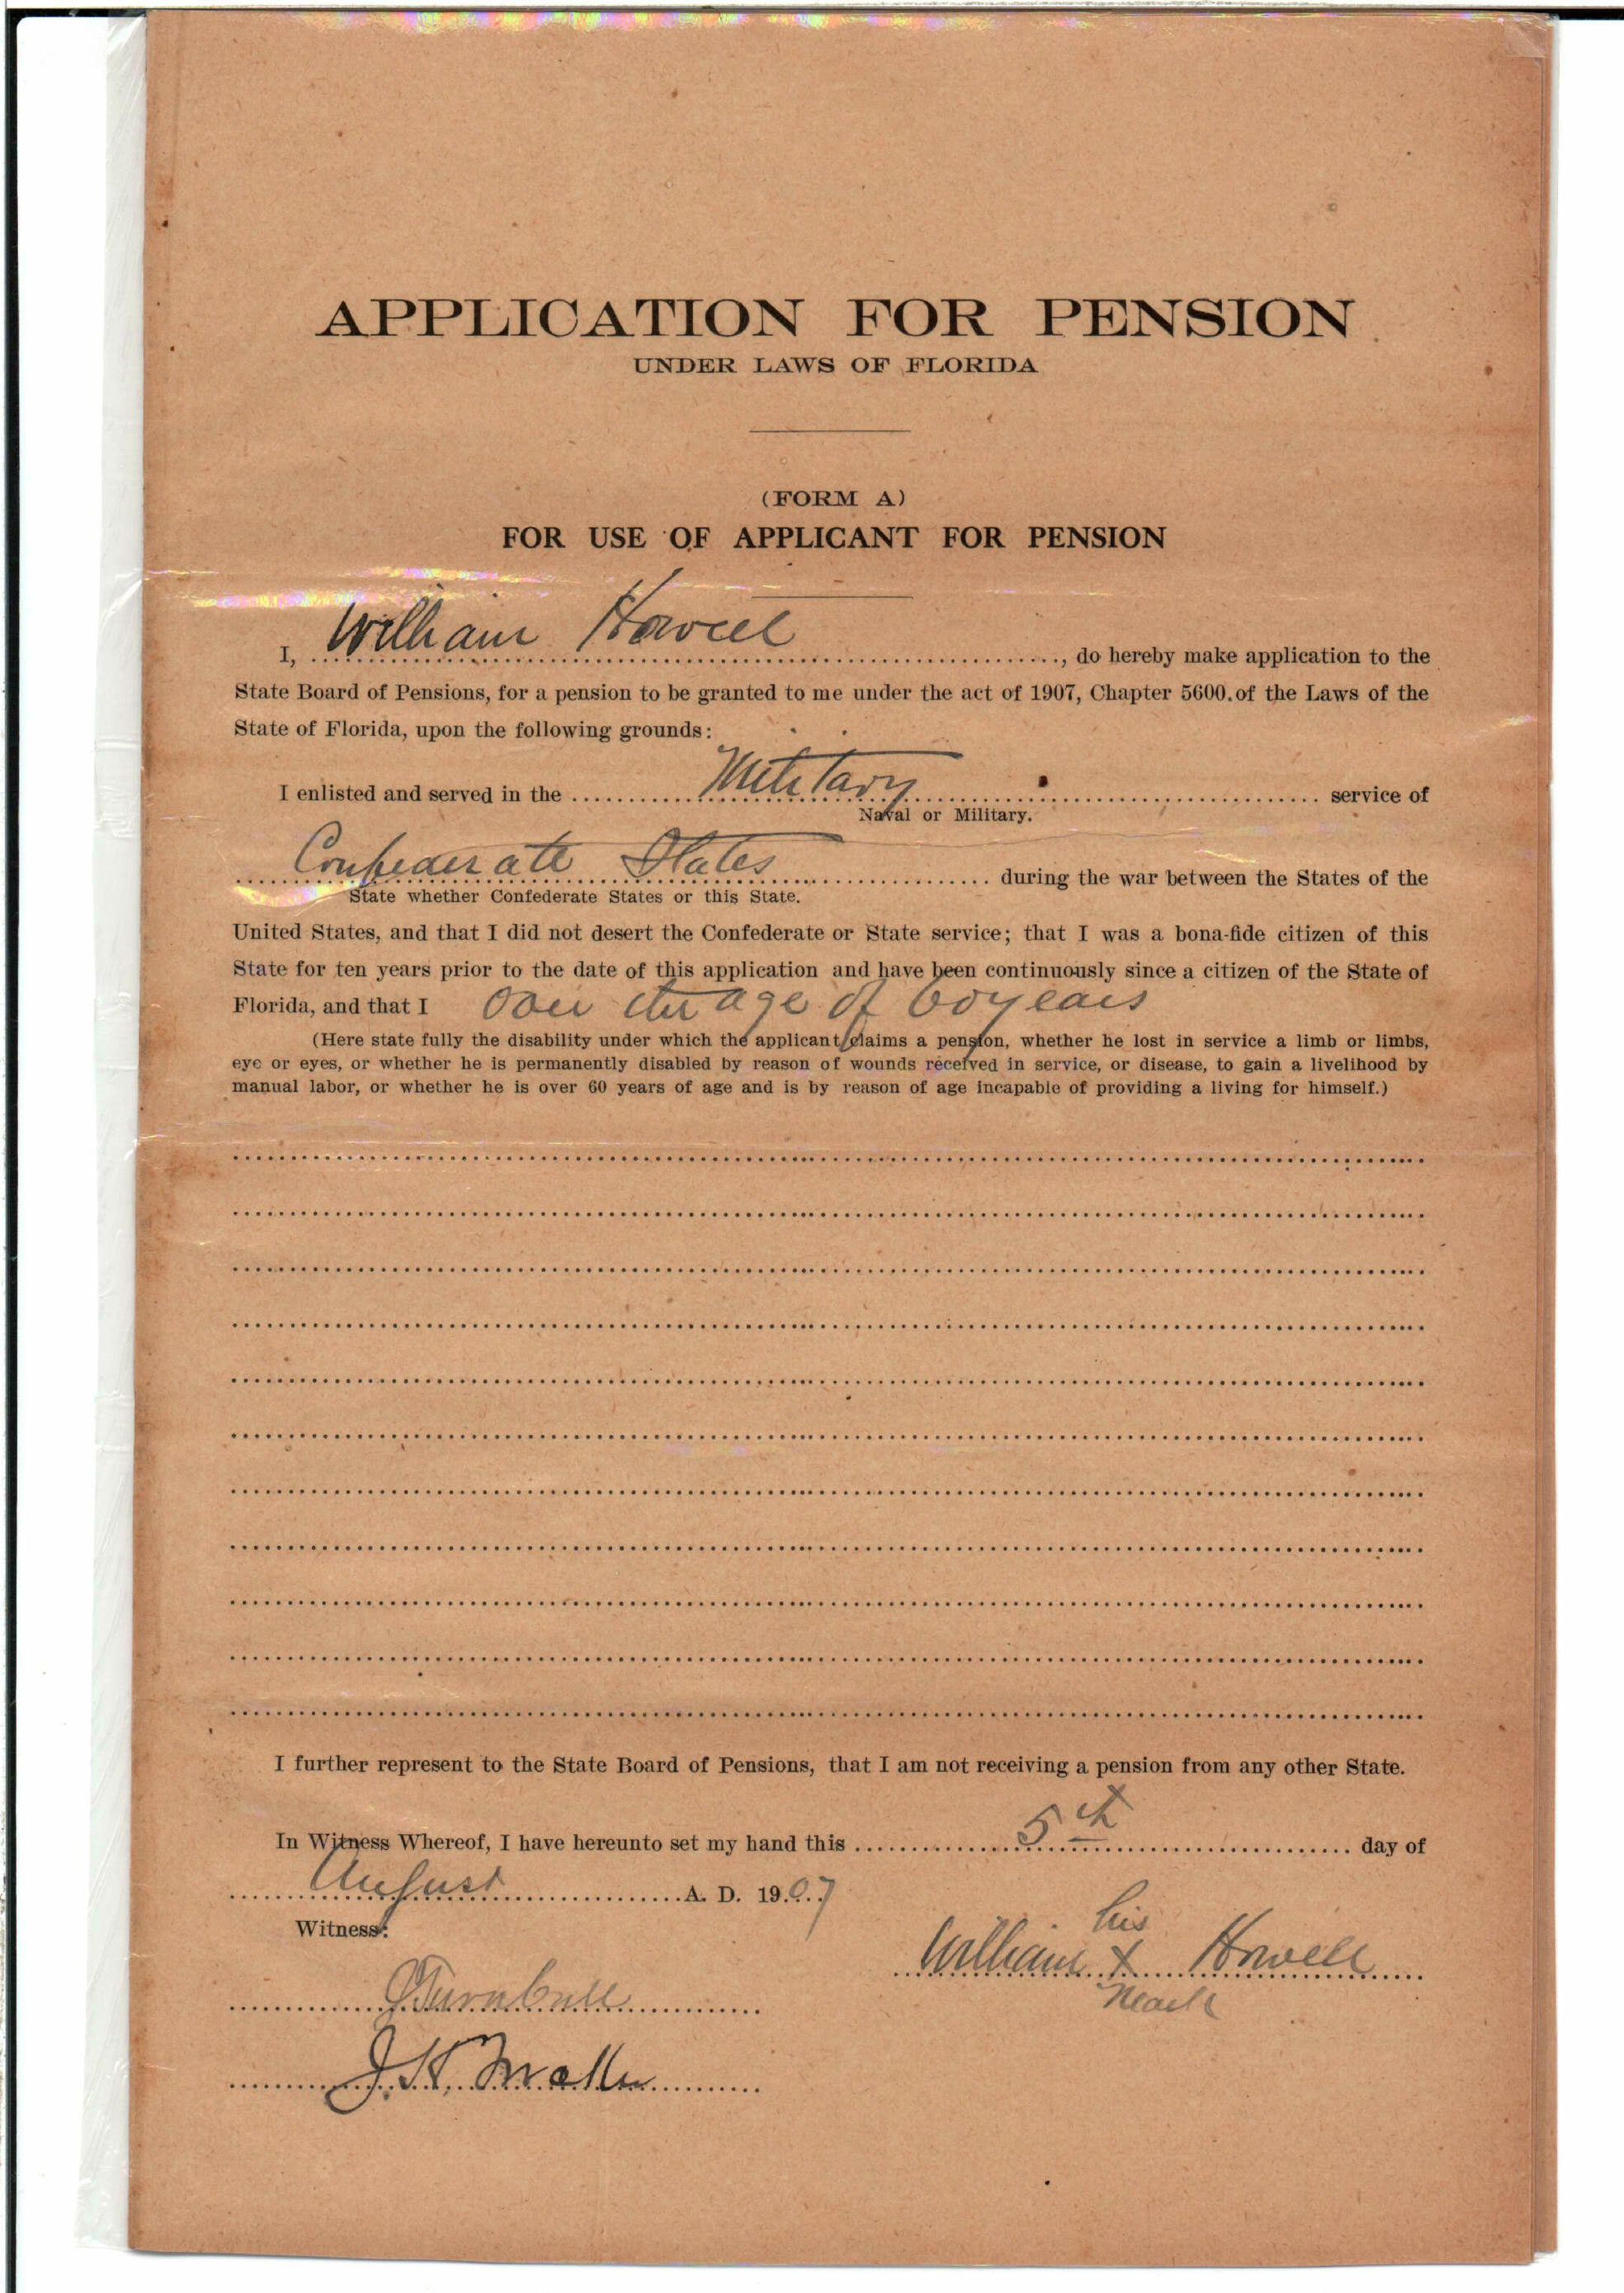 APPLICATION FOR PENSION
UNDER LAWS OF FLORIDA
(FORM A)
FOR USE OF APPLICANT FOR PENSION
I, William Howell, do hereby make application to the
State Board of Pensions, for a pension to be granted to me under the act of 1907, Chapter 5600, of the Laws of the
State of Florida, upon the following grounds:
I enlisted and served in the Military service of
Naval or Military.
Confederate States during the war between the States of the
State whether Confederate States or this State.
United States, and that I did not desert the Confederate or State service; that I was a bona-fide citizen of this
State for ten years prior to the date of this application and have been continuously since a citizen of the State of
Florida, and that I over the age of 60 years
(Here state fully the disability under which the applicant claims a pension, whether he lost in service a limb or limbs,
eye or eyes, or whether he is permanently disabled by reason of wounds received in service, or disease, to gain a livelihood by
manual labor, or whether he is over 60 years of age and is by reason of age incapable of providing a living for himself.)
I further represent to the State Board of Pensions, that I am not receiving a pension from any other State.
In Witness Whereof, I have hereunto set my hand this 5th day of
August A. D. 1907
Witness:
his
William X Howell
mark
Turnbull
J. H.